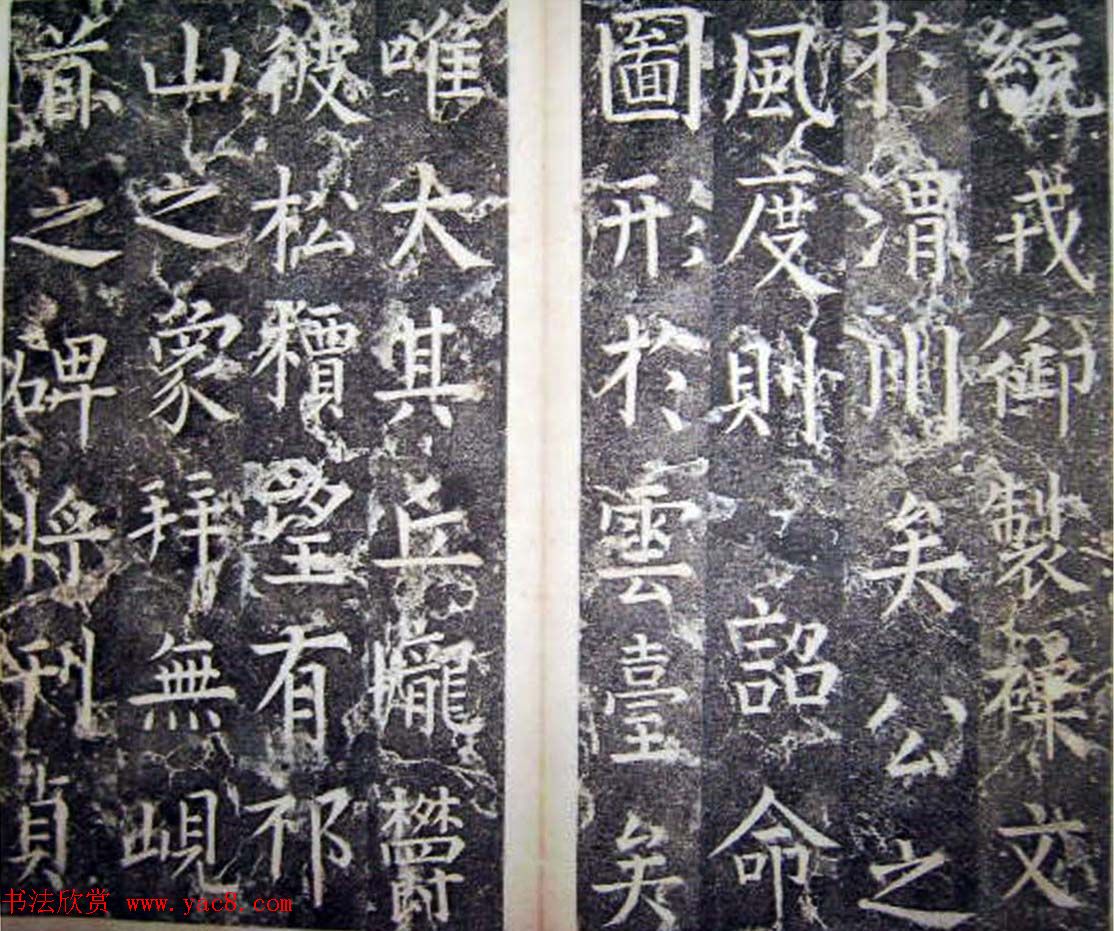 統戎御製文
於渭川矣公之
風度則詔命
圖形於雲臺矣
唯大其丘壠欝
彼松檟望有祁
山之象拜無峴
首之碑將刊貞
书法欣赏 www.yac8.com